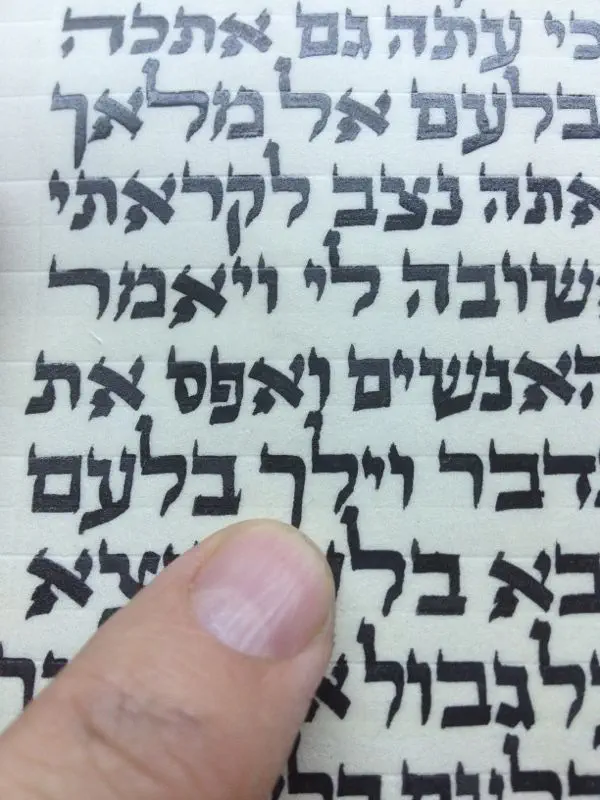 כי עתה גם אתכה
בלעם אל מלאך
אתה נצב לקראתי
שובה לי ויאמר
האנשים ואפס את
דבר וילך בלעם
בא
גבול